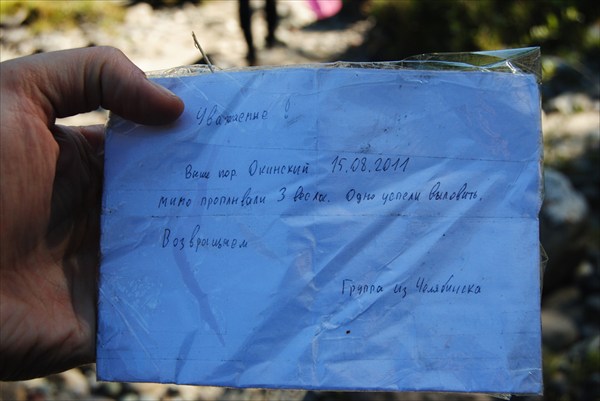 Уважение !
Выше пор. Окинский 15.08.2011
мимо проплывали 3 весла. Одно успели выловить.
Возвращаем
Группа из Челябинска